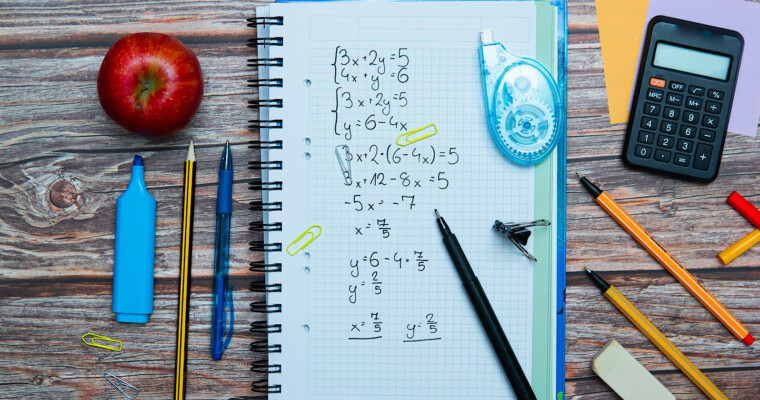 3x+2y=5
4x+y=6
3x+2y=5
y=6-4x
3x+2·(6-4x)=5
3x+12-8x=5
-5x=-7
x=7/5
y=6-4·7/5
y=2/5
x=7/5 y=2/5
OFF √
MRC M- M+ ÷
7 8 9 %
4 5 6 ×
1 2 3 -
0 . = +